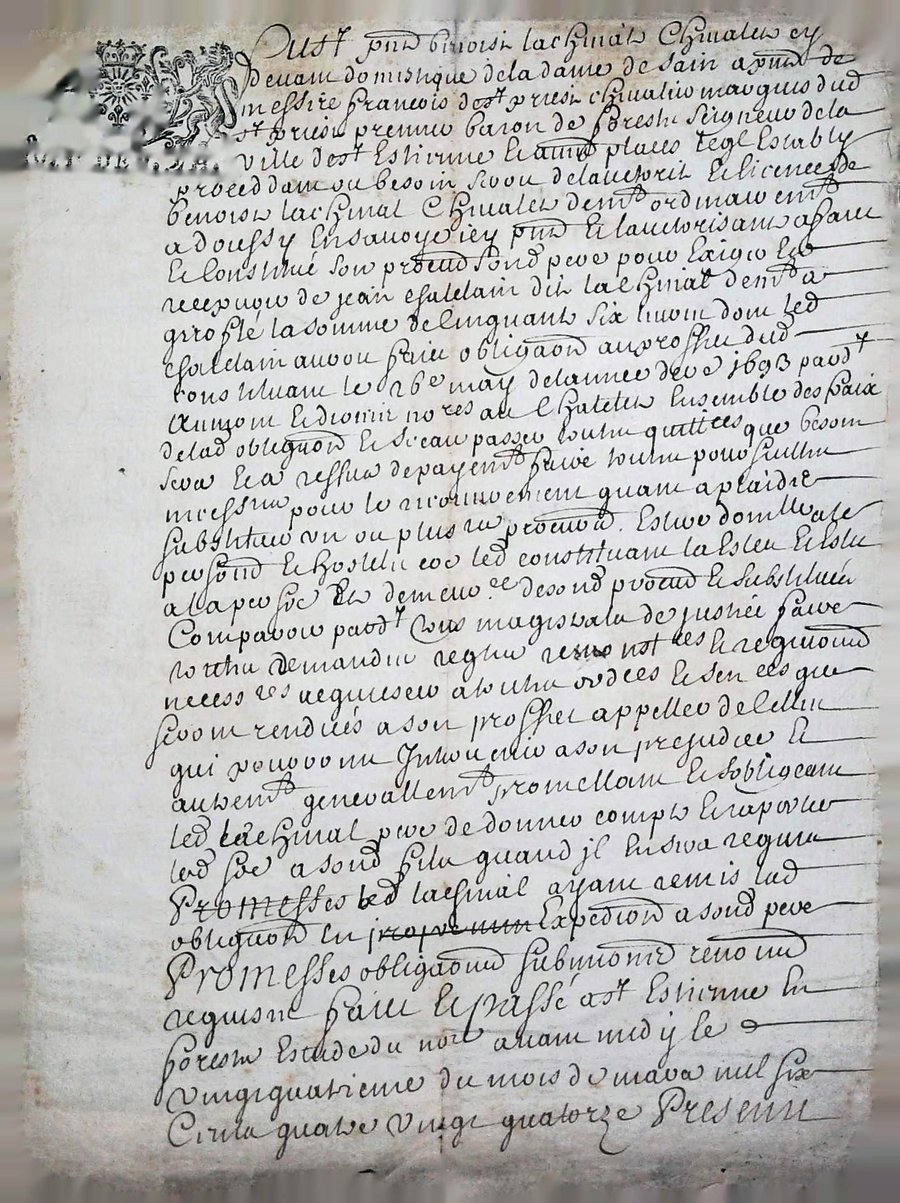 pnt benoist lachinat Chivalet cy
devant domestique de la dame de sain a pnt de
messire francois de st priest chivalier marquis dud
st priest premier baron de forestz seigneur de la
ville de st Estienne & autres places leql Establit
procedant ou besoin seroit de lautorité & licence de
benoist lachinal Chivalet demt ordinairemt
a doussy En savoye icy pnt & lautorisant a faict
& Constitué son procur sond pere pour Exiger &
recepvoir de jean chatelain dit lachinal demt a
la somme de cinquante six livres dont led
chatelain auroit faict obligaon au proffit dud
constituant le 26e may de lannee dere 1693 pardt
& nores au Chatelet Ensemble des fraix
de lad obligaon & sceau passer toutes quittces que besoin
sera & a reffus de payemt faire toutes poursuittes
necessres pour le recouvrement quant a plaider
substituer un ou plusrs procur. Estre domicille
& led constituant la Esteu & Eslu
a la persne & demeure de sond procur & substitués
Comparoir pardt tous magistrats de justice faire
touttes demandes reqtes remonstces & requisions
necessres acquiescer a touttes ordces & sences que
seront rendues a son proffit appeller de celles
qui pourront Intervenir a son prejudice &
autremt generallemt promettant & sobligeant
led lachinal pere de donner compte & raporter
led a sond fils quand jl En sera requis
Promesses led lachinal ayant remis lad
obligaon En Expedion a sond pere
Promesses obligaons submions renons
requise faict & passé a st Estienne En
forestz Estude du nore avant midy le
vingtquatrieme du mois de mars mil six
Cents quatre vingt quatorze Presents